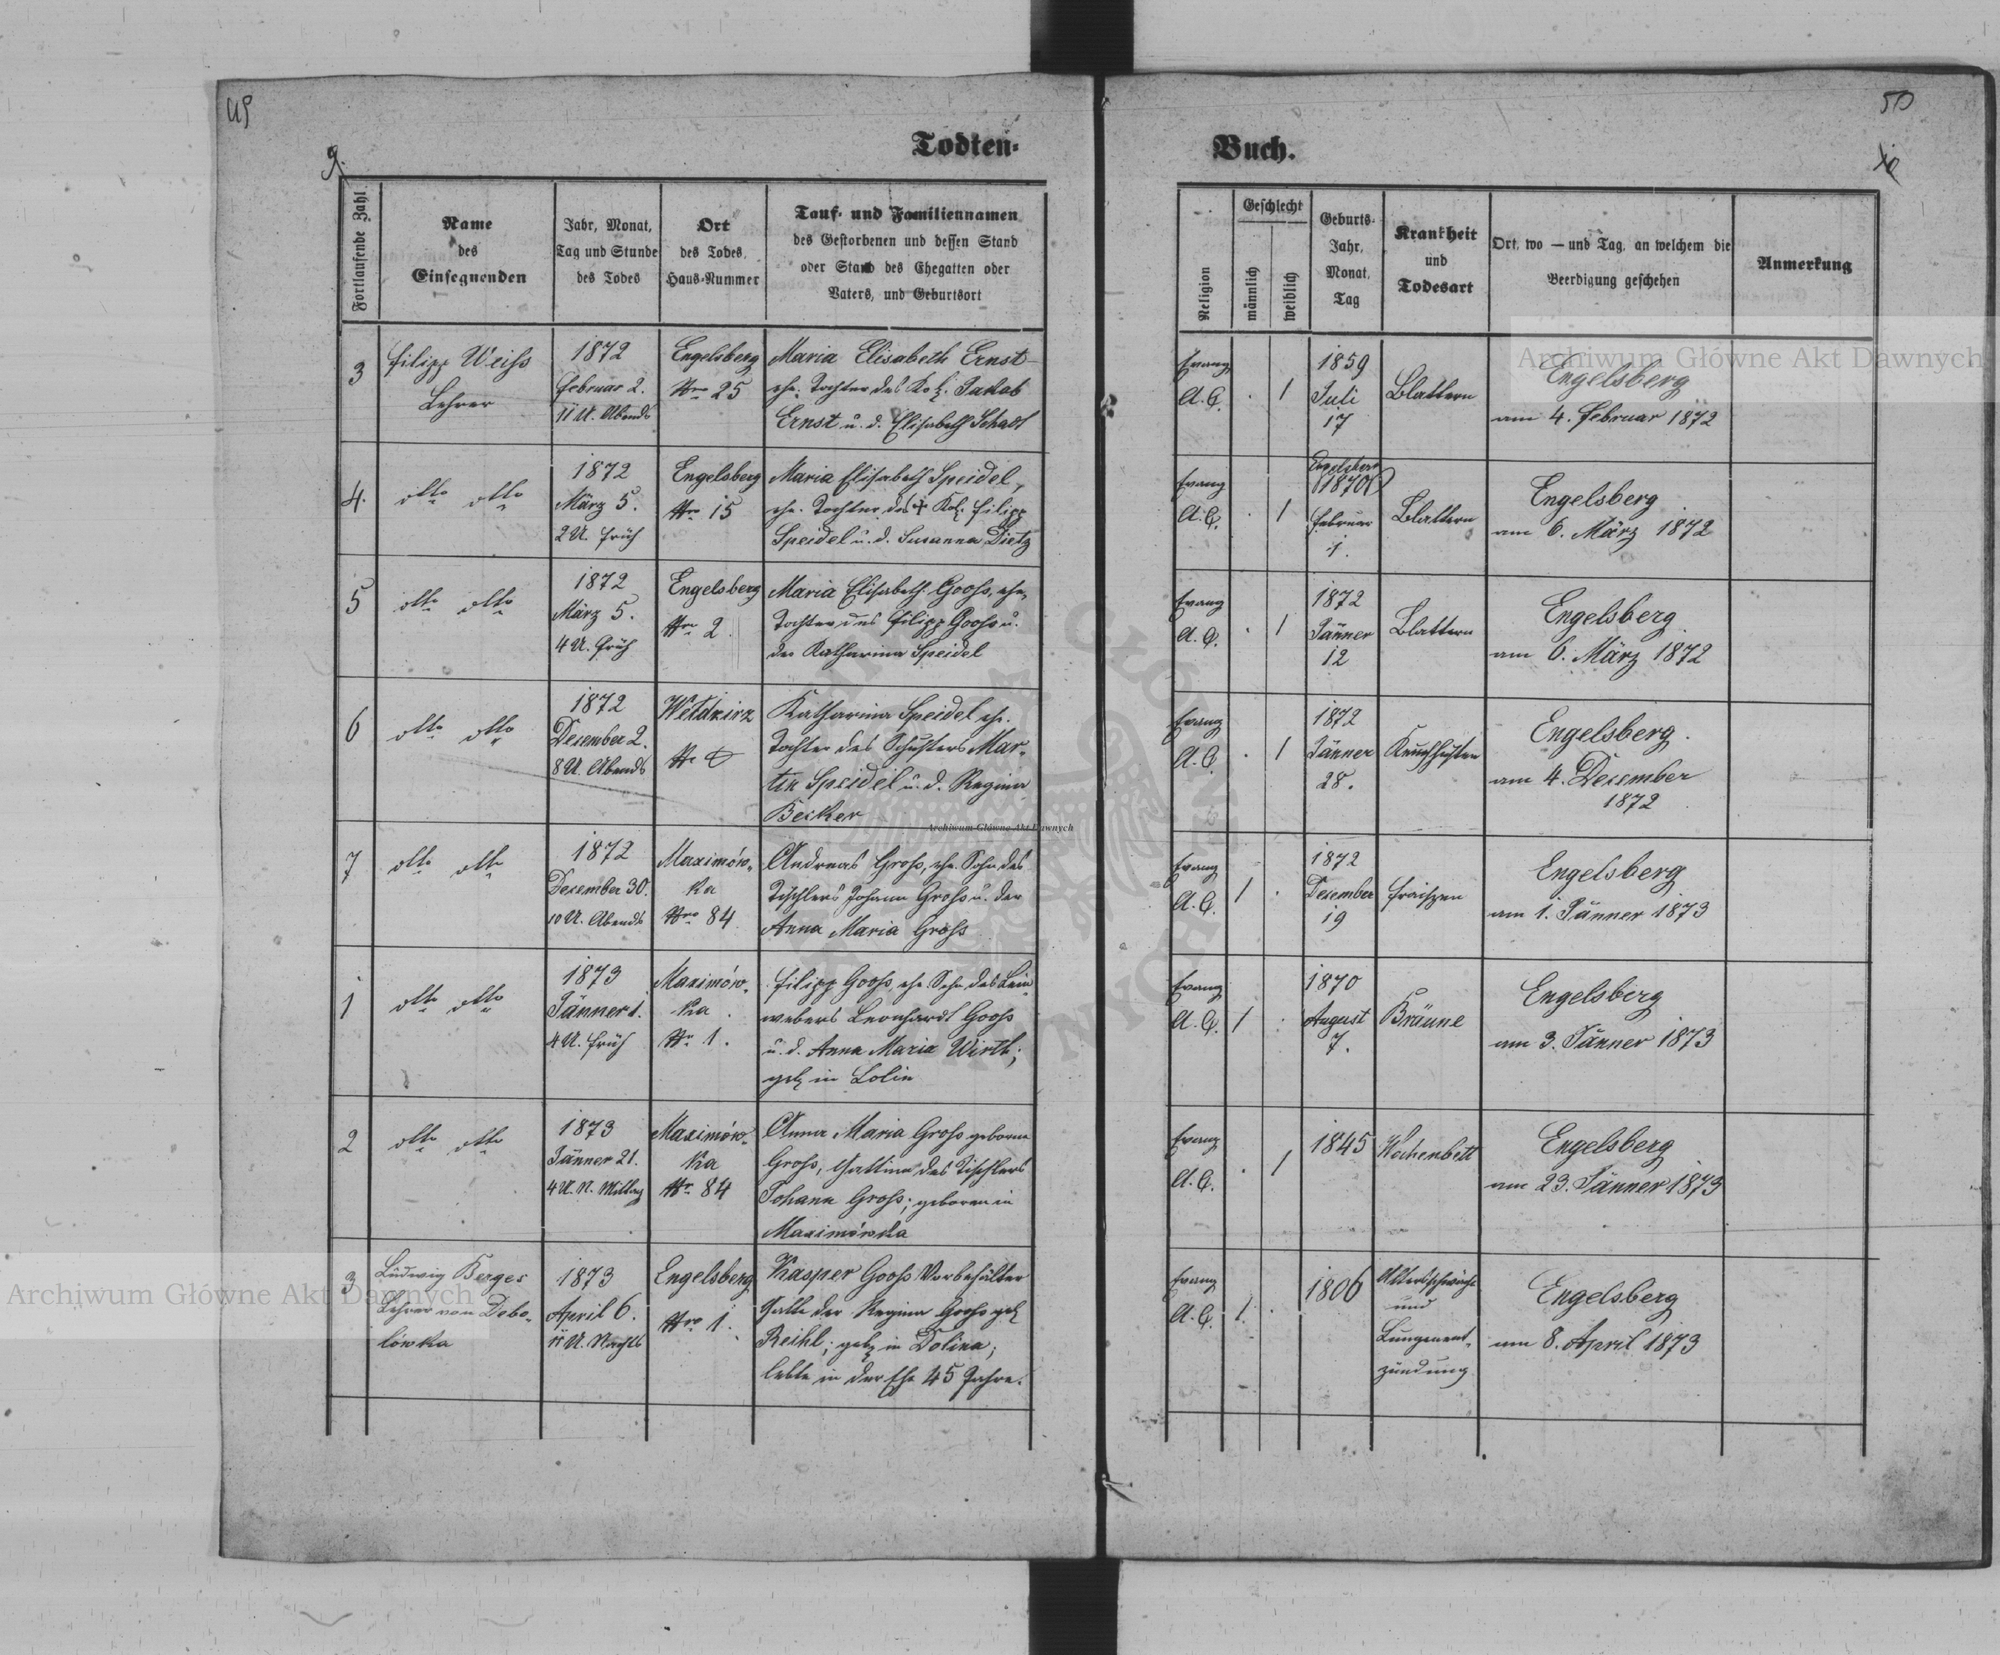 49
50
9.
10
Todten-
Buch.
Fortlaufende Zahl
Name
des
Einsegnenden
Jahr, Monat,
Tag und Stunde
des Todes
Ort
des Todes,
Haus-Nummer
Tauf- und Familiennamen
des Gestorbenen und dessen Stand
oder Stand des Ehegatten oder
Vaters, und Geburtsort
Religion
Geschlecht
männlich
weiblich
Geburts-
Jahr,
Monat,
Tag
Krankheit
und
Todesart
Ort, wo — und Tag, an welchem die
Beerdigung geschehen
Anmerkung
3
Filipp Weiss
Lehrer
1872
Februar 2.
11 U. Abends
Engelsberg
Nro 25
Maria Elisabeth Ernst
ehe. Tochter des Kol. Jakob
Ernst u. d. Elisabeth Schadt
Evang
A. C.
. 1
1859
Juli
17
Blattern
Engelsberg
am 4. Februar 1872
4.
dtto dtto
1872
März 5.
2 U. früh
Engelsberg
Nro 15
Maria Elisabeth Speidel,
ehe. Tochter des + Kol. Filipp
Speidel u. d. Susanna Dietz
Evang
A. C.
. 1
Engelsberg
(1870)
Februar
1.
Blattern
Engelsberg
am 6. März 1872
5
dtto dtto
1872
März 5.
4 U. früh
Engelsberg
Nro 2.
Maria Elisabeth Goohs, ehe.
Tochter des Filipp Goohs u.
der Katharina Speidel
Evang
A. C.
. 1
1872
Jänner
12
Blattern
Engelsberg
am 6. März 1872
6
dtto dtto
1872
December 2.
8 U. Abends
Wełdzirz
Nr
Katharina Speidel ehe.
Tochter des Schusters Mar-
tin Speidel u. d. Regina
Becker
Evang
A. C.
. 1
1872
Jänner
28.
Keuchhusten
Engelsberg.
am 4. December
1872
7
dtto dtto
1872
December 30.
10 U. Abends
Maximów-
ka
Nro 84
Andreas Gross, ehe. Sohn des
Tischlers Johann Gross u. der
Anna Maria Gross
Evang
A. C.
1 .
1872
December
19
Fraissen
Engelsberg
am 1. Jänner 1873
1
dtto dtto
1873
Jänner 1.
4 U. früh
Maximów-
ka
Nr 1.
Filipp Goohs, ehe. Sohn des Lein-
webers Leonhardt Goohs
u. d. Anna Maria Wirth;
geb. in Lolin
Evang
A. C.
1 .
1870
August
7.
Bräune
Engelsberg
am 3. Jänner 1873
2
dtto dtto
1873
Jänner 21.
4 U. N. Mittag
Maximów-
ka
Nr 84
Anna Maria Gross geborne
Gross, Gattin des Tischlers
Johann Gross; geboren in
Maximówka
Evang
A. C.
. 1
1845
Wochenbett
Engelsberg
am 23. Jänner 1873
3
Ludwig Berges
Lehrer von Debo-
lówka
1873
April 6.
11 U. Nachts
Engelsberg
Nro 1.
Kasper Goohs Vorbehälter
Gatte der Regina Goohs geb.
Reihl; geb. in Dolina;
lebte in der Ehe 45 Jahre.
Evang
A. C.
1 .
1806
Altersschwäche
und
Lungenent-
zündung
Engelsberg
am 8. April 1873
Archiwum Główne Akt Dawnych
Archiwum Główne Akt Dawnych
Archiwum Główne Akt Dawnych